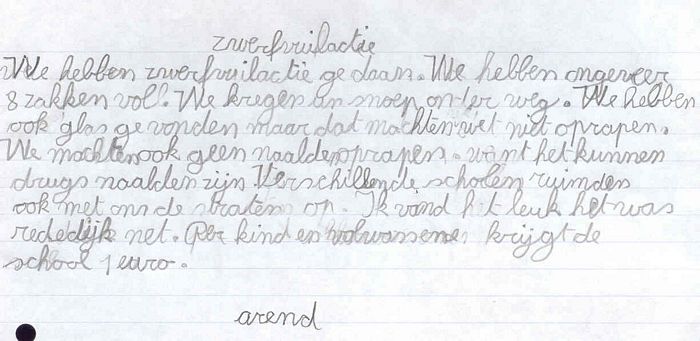 zwerfvuilactie
We hebben zwerfvuilactie ge daan. We hebben ongeveer
8 zakken vol. We kregen en snoep onder weg. We hebben
ook glas ge vonden maar dat machten we niet oprapen.
We machten ook geen naalden oprapen. want het kunnen
drugs naalden zijn. Verschillende scholen ruimden
ook met ons de straten op. Ik vond het leuk het was
rededijk net. Per kind en volwassene krijgt de
school 1 euro.
arend